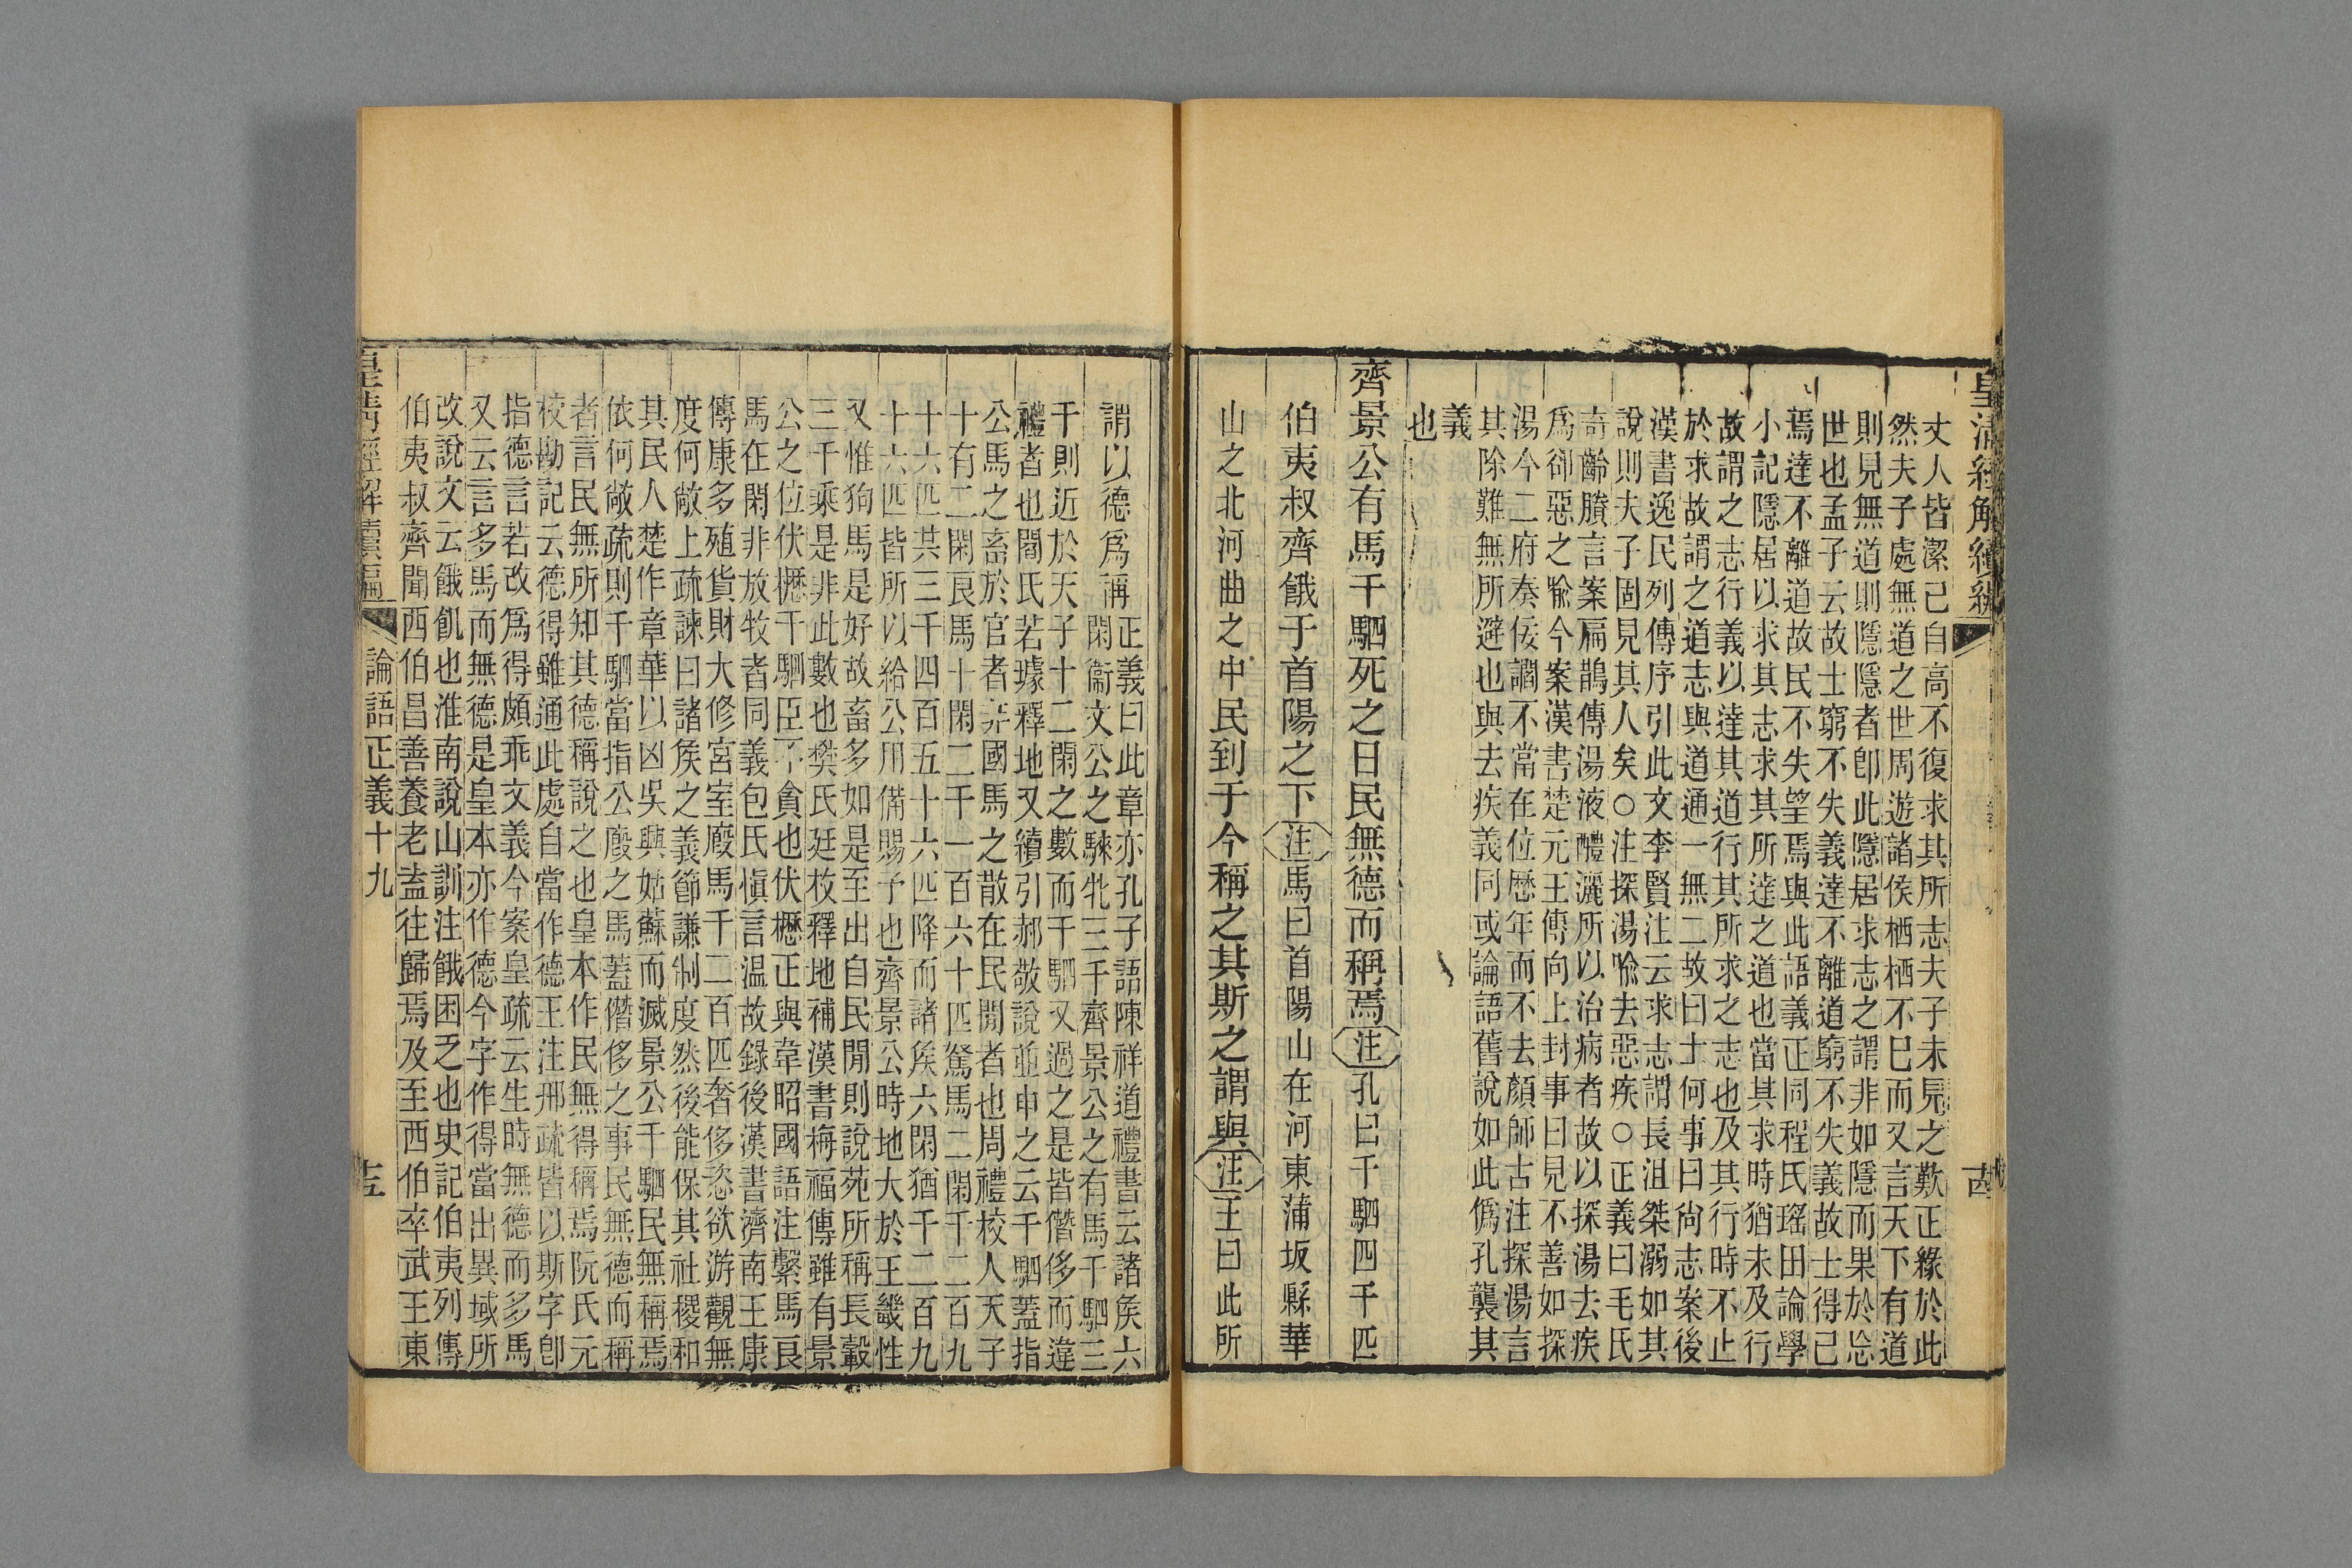 皇清經解續編
丈人皆潔己自高不復求其所志夫子未見之歎正緣於此
然夫子處無道之世周遊諸侯栖栖不巳而又言天下有道
則見無道則隱隱者卽此隱居求志之謂非如隱而果於忘
世也孟子云故士窮不失義達不離道窮不失義故士得己
焉達不離道故民不失望焉與此語義正同程氏瑤田論學
小記隱居以求其志求其所達之道也當其求時猶未及行
故謂之志行義以達其道行其所求之志也及其行時不止
於求故謂之道志與道通一無二故曰士何事曰尙志案後
漢書逸民列傳序引此文李賢注云求志謂長沮桀溺如其
說則夫子固見其人矣○注探湯喩去惡疾○正義曰毛氏
奇齡賸言案扁鵲傳湯液醴灑所以治病者故以探湯去疾
爲卻惡之喩今案漢書楚元王傳向上封事曰見不善如探
湯今二府奏佞讇不當在位歷年而不去顏師古注探湯言
其除難無所避也與去疾義同或論語舊說如此僞孔襲其
義
也
齊景公有馬千駟死之日民無德而稱焉注孔曰千駟四千匹
伯夷叔齊餓于首陽之下注馬曰首陽山在河東蒲坂縣華
山之北河曲之中民到于今稱之其斯之謂與注王曰此所
謂以德爲稱正義曰此章亦孔子語陳祥道禮書云諸矦六
閑衞文公之騋牝三千齊景公之有馬千駟三
千則近於天子十二閑之數而千駟又過之是皆僭侈而違
禮者也閻氏若璩釋地又續引郝敬說並申之云千駟蓋指
公馬之畜於官者非國馬之散在民閒者也周禮校人天子
十有二閑良馬十閑二千一百六十匹駑馬二閑千二百九
十六匹共三千四百五十六匹降而諸矦六閑猶千二百九
十六匹皆所以給公用備賜予也齊景公時地大於王畿性
又惟狗馬是好故畜多如是至出自民閒則說苑所稱長轂
三千乘是非此數也樊氏廷枚釋地補漢書梅福傳雖有景
公之位伏櫪千駟臣不貪也伏櫪正與韋昭國語注繫馬良
馬在閑非放牧者同義包氏愼言温故錄後漢書濟南王康
傳康多殖貨財大修宮室廄馬千二百匹奢侈恣欲游觀無
度何敞上疏諫曰諸矦之義節謙制度然後能保其社稷和
其民人楚作章華以凶吳興姑蘇而滅景公千駟民無稱焉
依何敞疏則千駟當指公廄之馬蓋僭侈之事民無德而稱
者言民無所知其德稱說之也皇本作民無得稱焉阮氏元
校勘記云德得雖通此處自當作德王注邢疏皆以斯字卽
指德言若改爲得頗乖文義今案皇疏云生時無德而多馬
又云言多馬而無德是皇本亦作德今字作得當出異域所
改說文云餓飢也淮南說山訓注餓困乏也史記伯夷列傳
伯夷叔齊聞西伯昌善養老盍往歸焉及至西伯卒武王東
皇清經解續編 論語正義十九